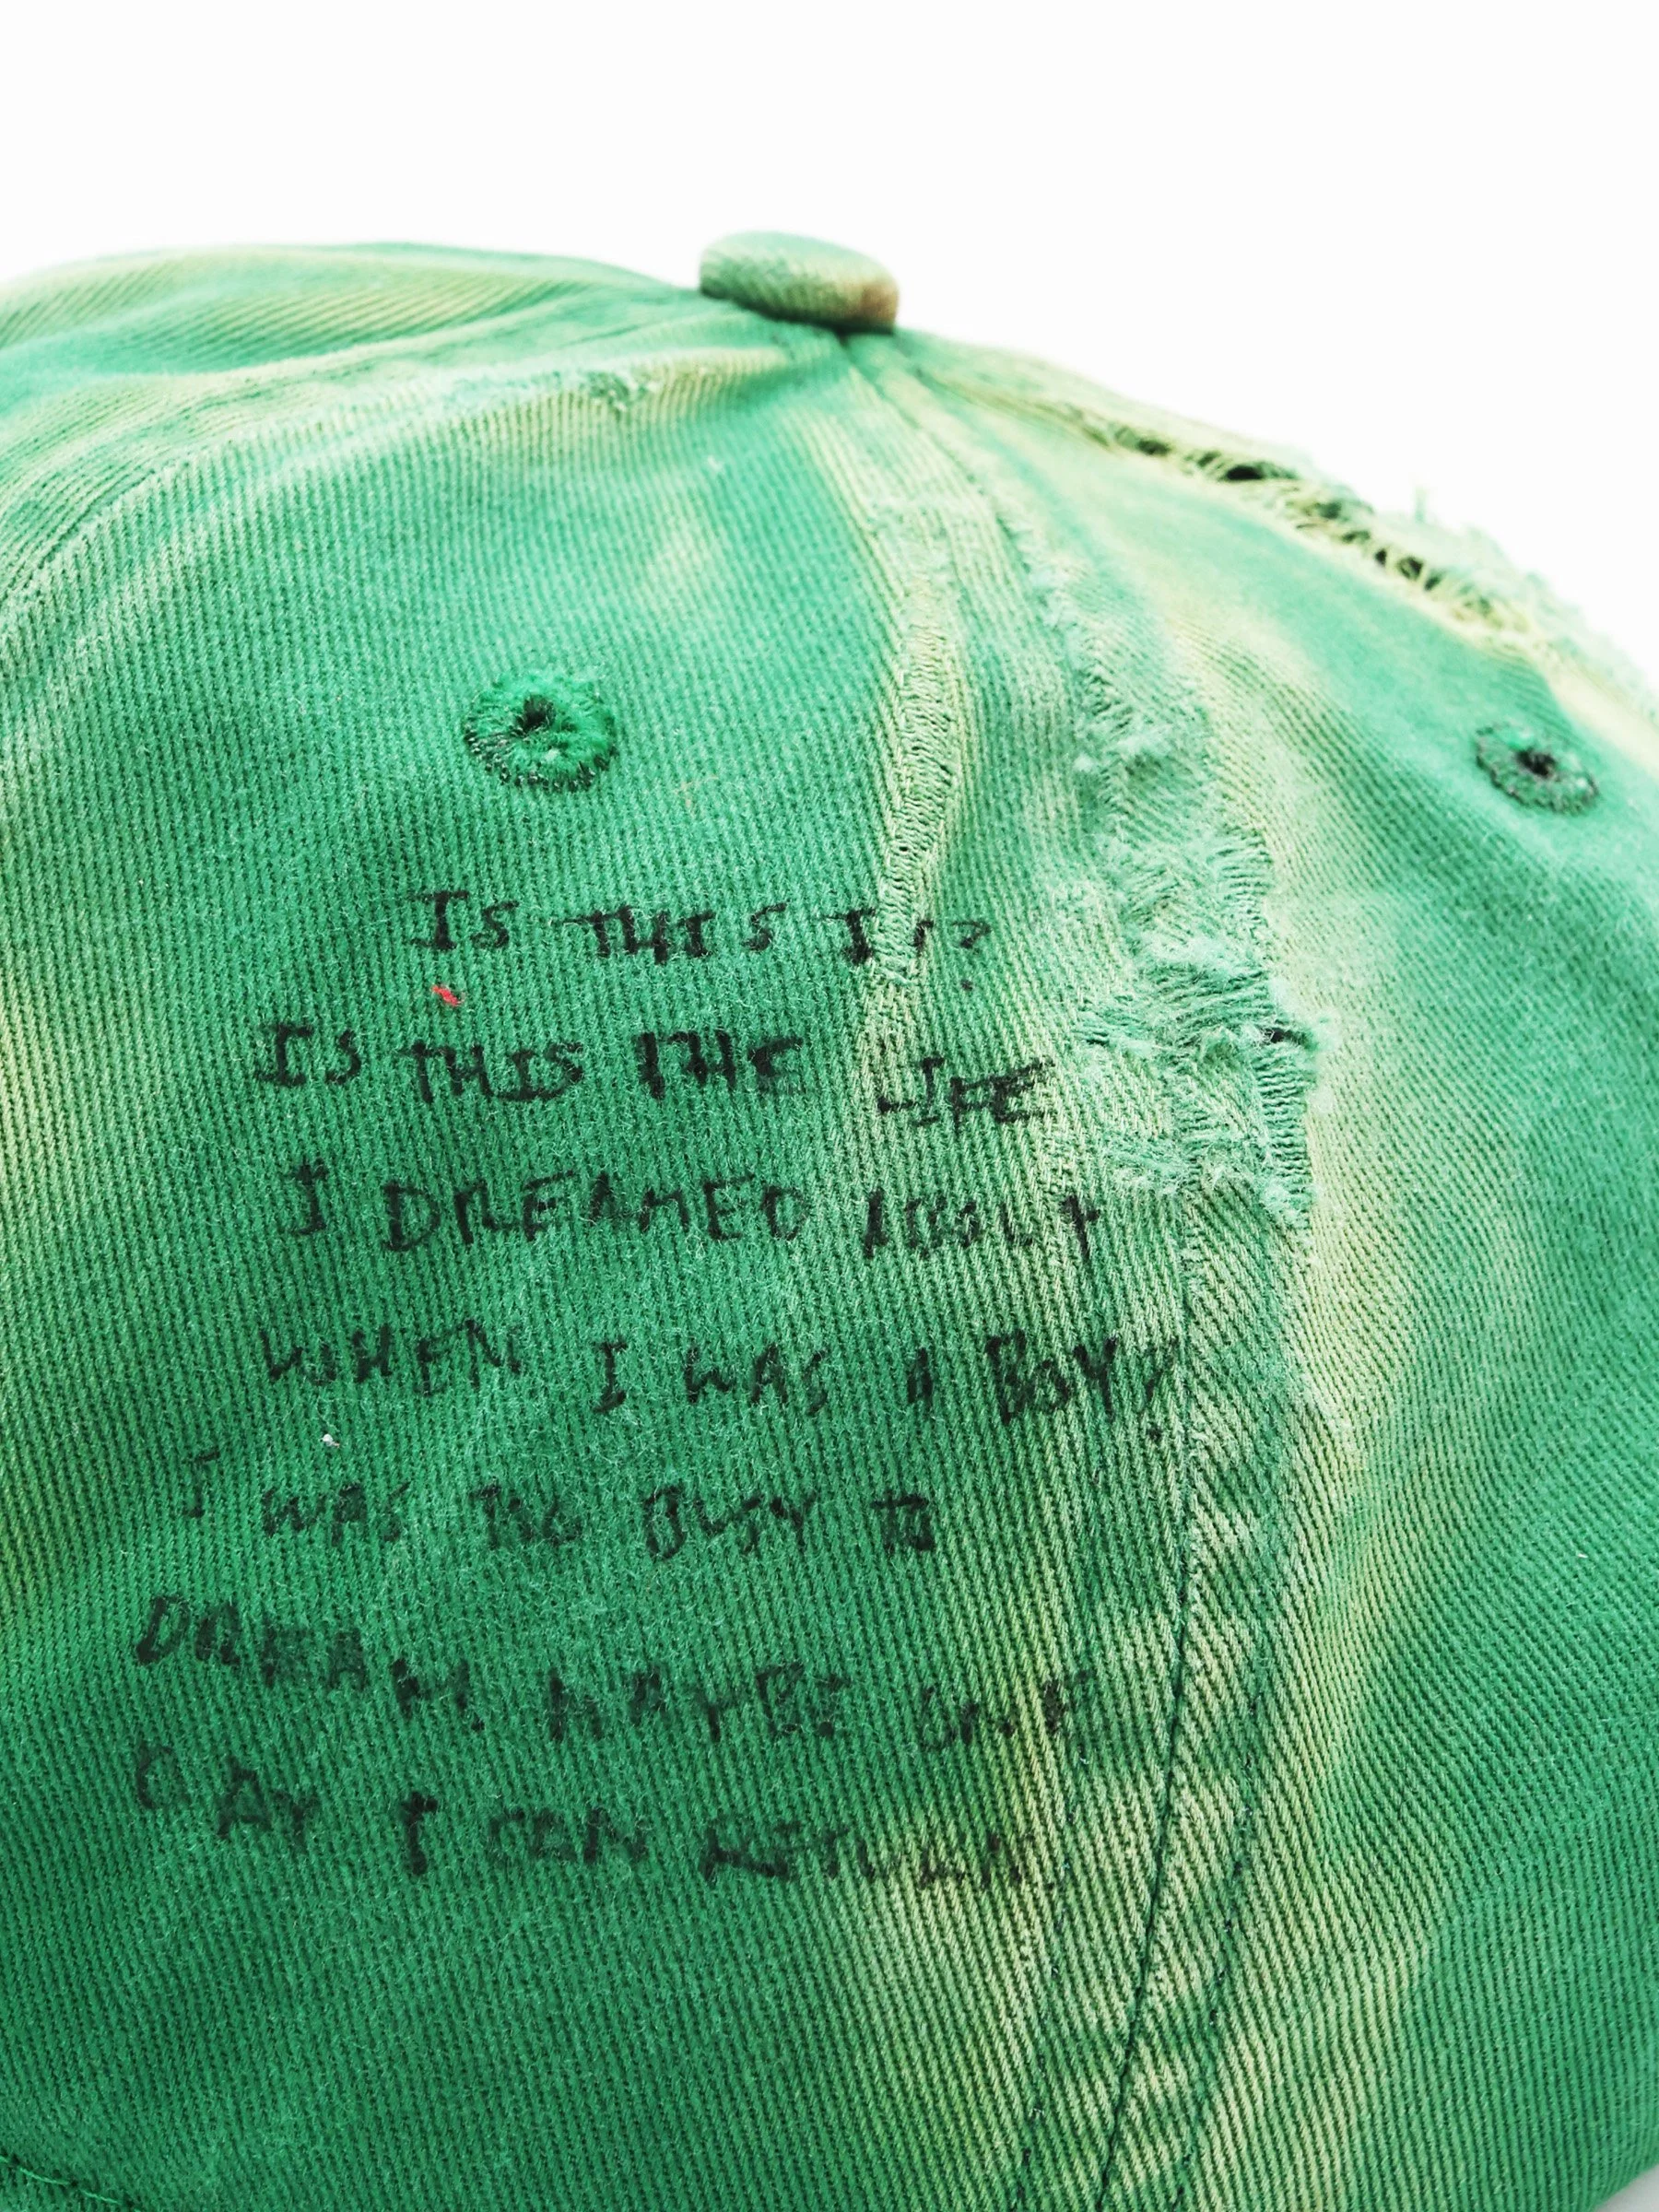 IS THIS IT?
IS THIS THE LIFE
I DREAMED ABOUT
WHEN I WAS A BOY?
I WAS TOO BUSY TO
DREAM. MAYBE ONE
DAY I CAN RETURN